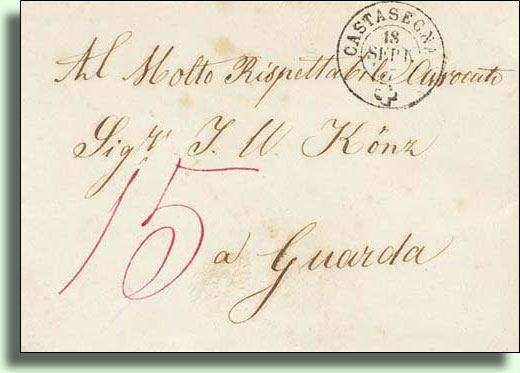 CASTASEGNA
18
SEPT.
Al Molto Rispettabile Avvocato
Sigʳ J. W. Könz
15
a Guarda